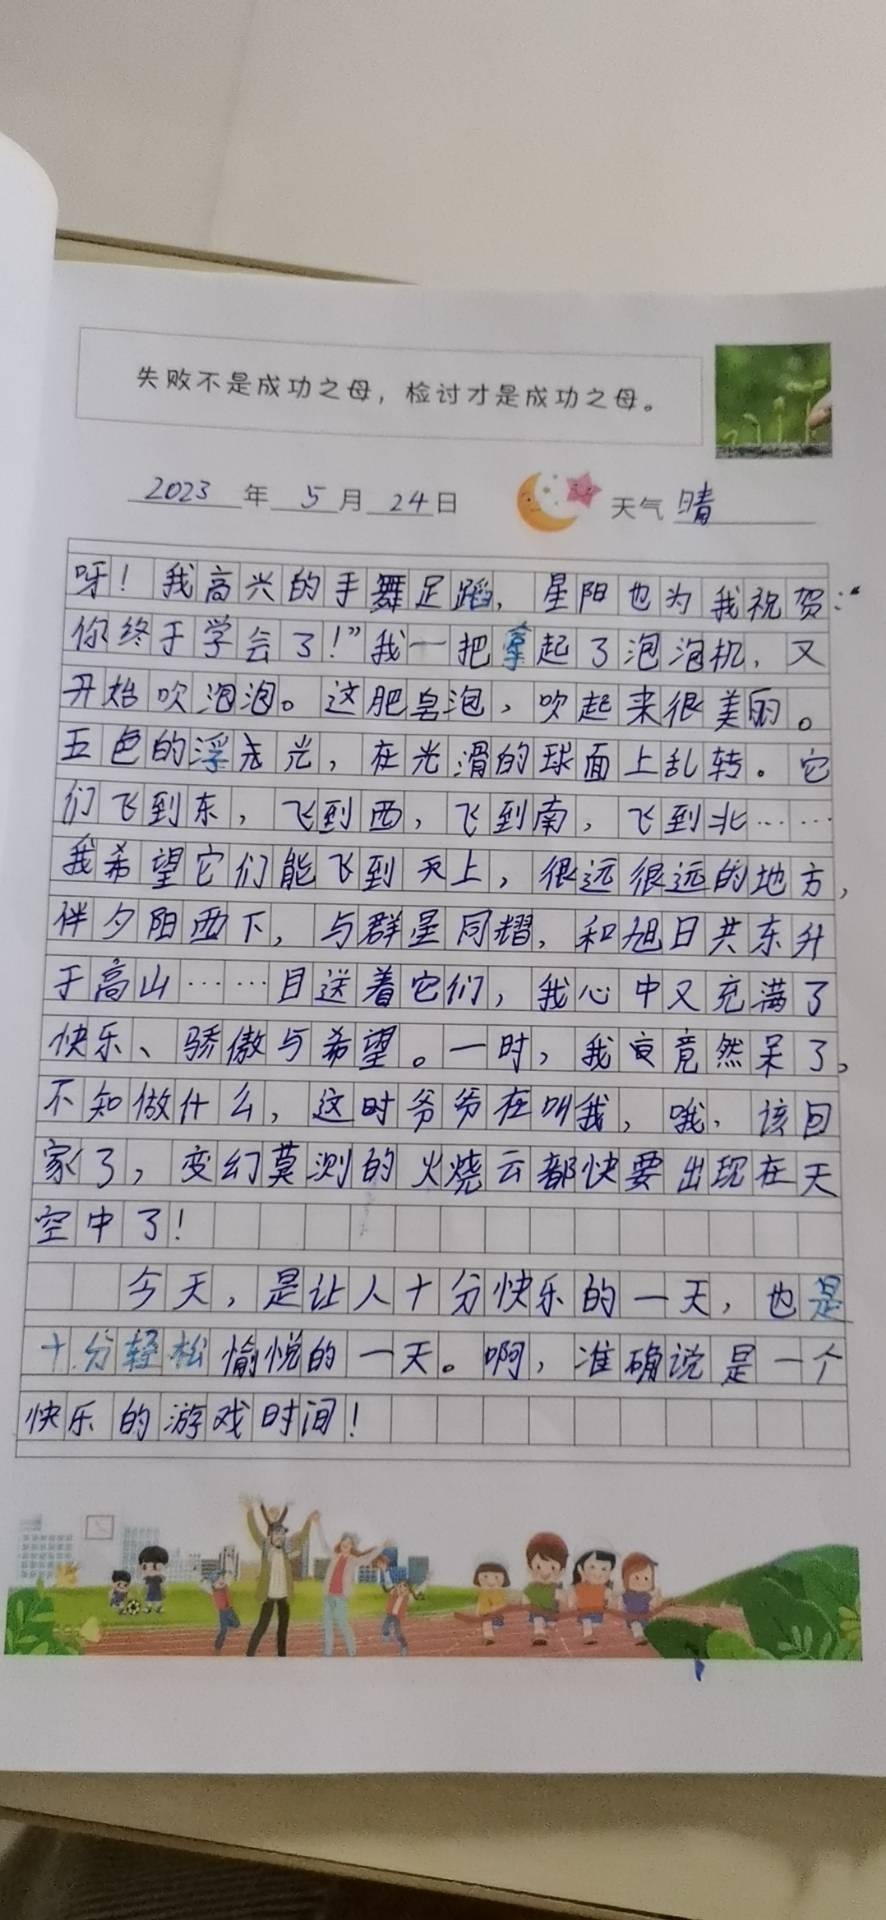 失败不是成功之母，检讨才是成功之母。
2023年5月24日 天气 晴
呀！我高兴的手舞足蹈，星阳也为我祝贺：“
你终于学会了！”我一把拿起了泡泡机，又
开始吹泡泡。这肥皂泡，吹起来很美丽。
五色的浮光，在光滑的球面上乱转。它
们飞到东，飞到西，飞到南，飞到北……
我希望它们能飞到天上，很远很远的地方，
伴夕阳西下，与群星同耀，和旭日共东升
于高山……目送着它们，我心中又充满了
快乐、骄傲与希望。一时，我竟然呆了。
不知做什么，这时爷爷在叫我，哦，该回
家了，变幻莫测的火烧云都快要出现在天
空中了！
今天，是让人十分快乐的一天，也是
十分轻松愉悦的一天。啊，准确说是一个
快乐的游戏时间！